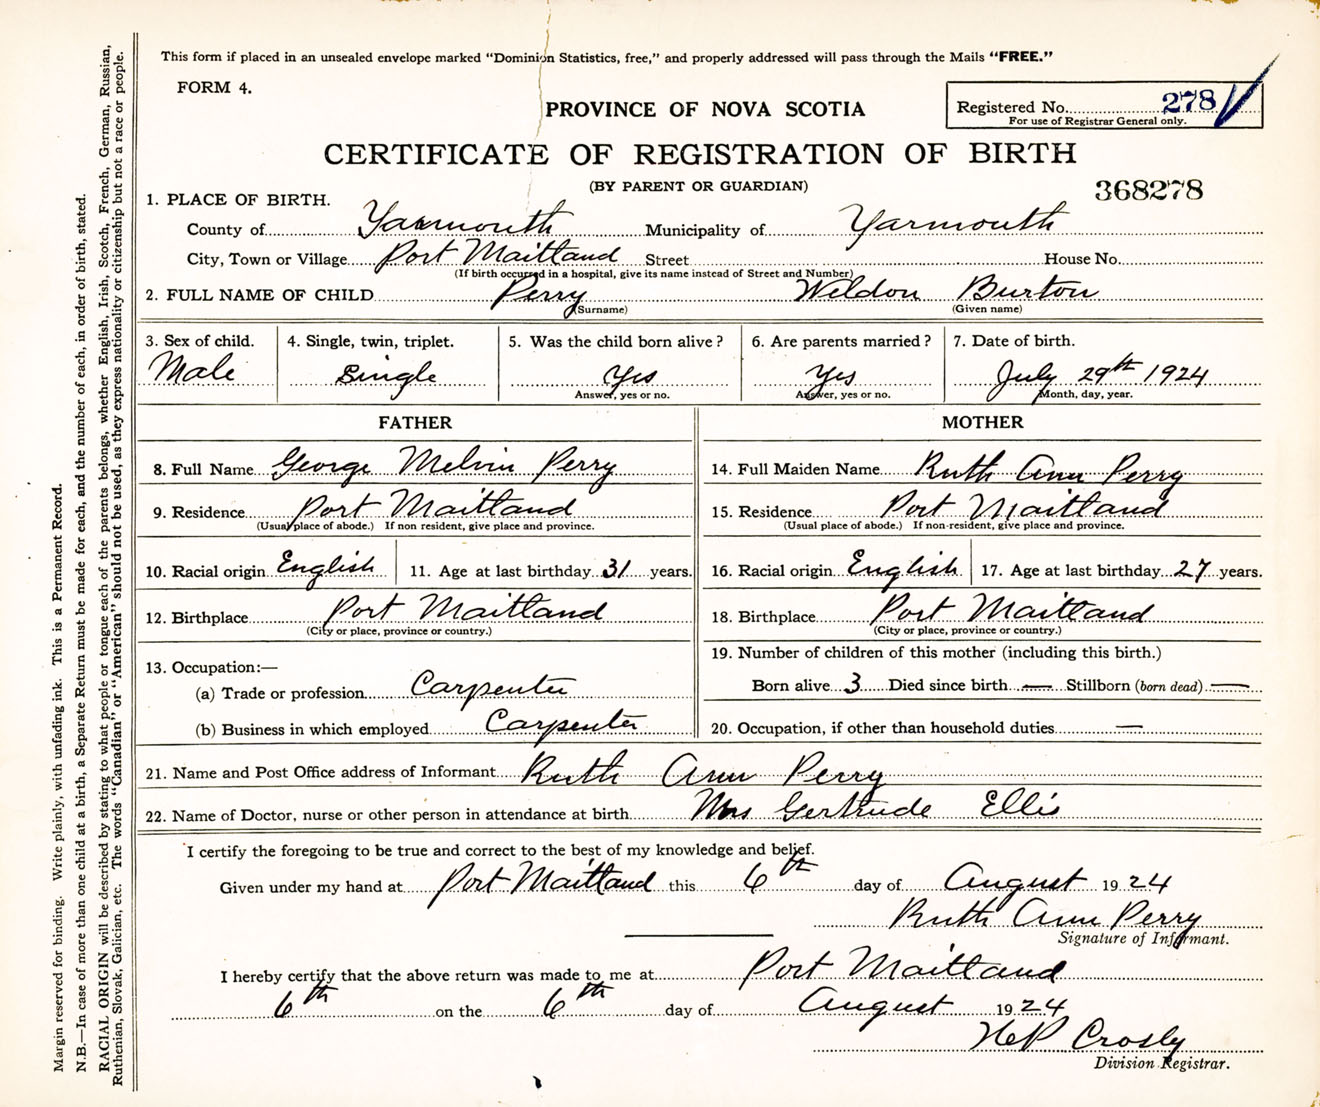 This form if placed in an unsealed envelope marked "Dominion Statistics, free," and properly addressed will pass through the Mails "FREE."
FORM 4.
PROVINCE OF NOVA SCOTIA
Registered No. 278
For use of Registrar General only.
CERTIFICATE OF REGISTRATION OF BIRTH
(BY PARENT OR GUARDIAN)
368278
1. PLACE OF BIRTH.
County of Yarmouth Municipality of Yarmouth
City, Town or Village Port Maitland Street House No.
(If birth occurred in a hospital, give its name instead of Street and Number)
2. FULL NAME OF CHILD Perry Weldon Burton
(Surname) (Given name)
3. Sex of child. 4. Single, twin, triplet. 5. Was the child born alive? 6. Are parents married? 7. Date of birth.
Male Single Yes Yes July 29th 1924
Answer, yes or no. Answer, yes or no. Month, day, year.
FATHER
8. Full Name George Melvin Perry
9. Residence Port Maitland
(Usual place of abode.) If non resident, give place and province.
10. Racial origin English 11. Age at last birthday 31 years.
12. Birthplace Port Maitland
(City or place, province or country.)
13. Occupation:—
(a) Trade or profession Carpenter
(b) Business in which employed Carpenter
MOTHER
14. Full Maiden Name Ruth Ann Perry
15. Residence Port Maitland
(Usual place of abode.) If non-resident, give place and province.
16. Racial origin English 17. Age at last birthday 27 years.
18. Birthplace Port Maitland
(City or place, province or country.)
19. Number of children of this mother (including this birth.)
Born alive 3 Died since birth — Stillborn (born dead) —
20. Occupation, if other than household duties —
21. Name and Post Office address of Informant Ruth Ann Perry
22. Name of Doctor, nurse or other person in attendance at birth Mrs Gertrude Ellis
I certify the foregoing to be true and correct to the best of my knowledge and belief.
Given under my hand at Port Maitland this 6th day of August 1924
Ruth Ann Perry
Signature of Informant.
I hereby certify that the above return was made to me at Port Maitland
6th on the 6th day of August 1924
HP Crosby
Division Registrar.
Margin reserved for binding. Write plainly, with unfading ink. This is a Permanent Record.
N.B.—In case of more than one child at a birth, a Separate Return must be made for each, and the number of each, in order of birth, stated.
RACIAL ORIGIN will be described by stating to what people or tongue each of the parents belongs, whether English, Irish, Scotch, French, German, Russian,
Ruthenian, Slovak, Galician, etc. The words "Canadian" or "American" should not be used, as they express nationality or citizenship but not a race or people.